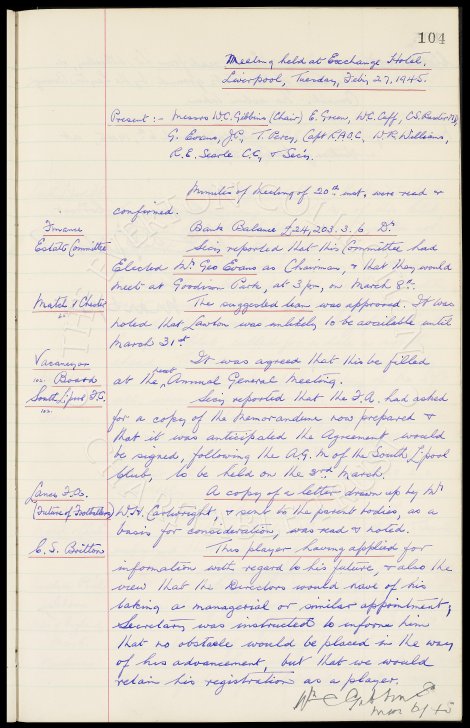 104
Meeting held at Exchange Hotel,
Liverpool, Tuesday, Feb'y 27, 1945.
Present :- Messrs W.C. Gibbins (Chair) E. Green, W.C. Cuff, C.S. Baxter M.B,
G. Evans, J.P., T. Percy, Capt R.A.O.C., W.R. Williams,
R.E. Searle C.C., & Sec'y.
Minutes of Meeting of 20th inst, were read &
confirmed.
Finance
Bank Balance £24,203. 3. 6 Dr
Estate Committee
Sec'y reported that this Committee had
Elected Mr Geo Evans as Chairman, & that they would
meet at Goodison Park, at 3 p.m, on March 8th.
Match v Chester
The suggested team was approved. It was
noted that Lawton was unlikely to be available until
March 31st
Vacancy on
Board
It was agreed that this be filled
at the next Annual General Meeting.
South L'pool F.C.
Sec'y reported that the F.A. had asked
for a copy of the Memorandum now prepared &
that it was anticipated the Agreement would
be signed, following the A.G.M of the South L'pool
Club, to be held on the 3rd March.
Lancs F.A.
(Future of Football)
A copy of a letter drawn up by Mr
W.H. Cartwright, & sent to the parent bodies, as a
basis for consideration, was read & noted.
C. S. Britton
This player having applied for
information with regard to his future, & also the
view that the Directors would have of his
taking a managerial or similar appointment,
Secretary was instructed to inform him
that no obstacle would be placed in the way
of his advancement, but that we would
retain his registration as a player.
W C Gibbins
Mar 6/45